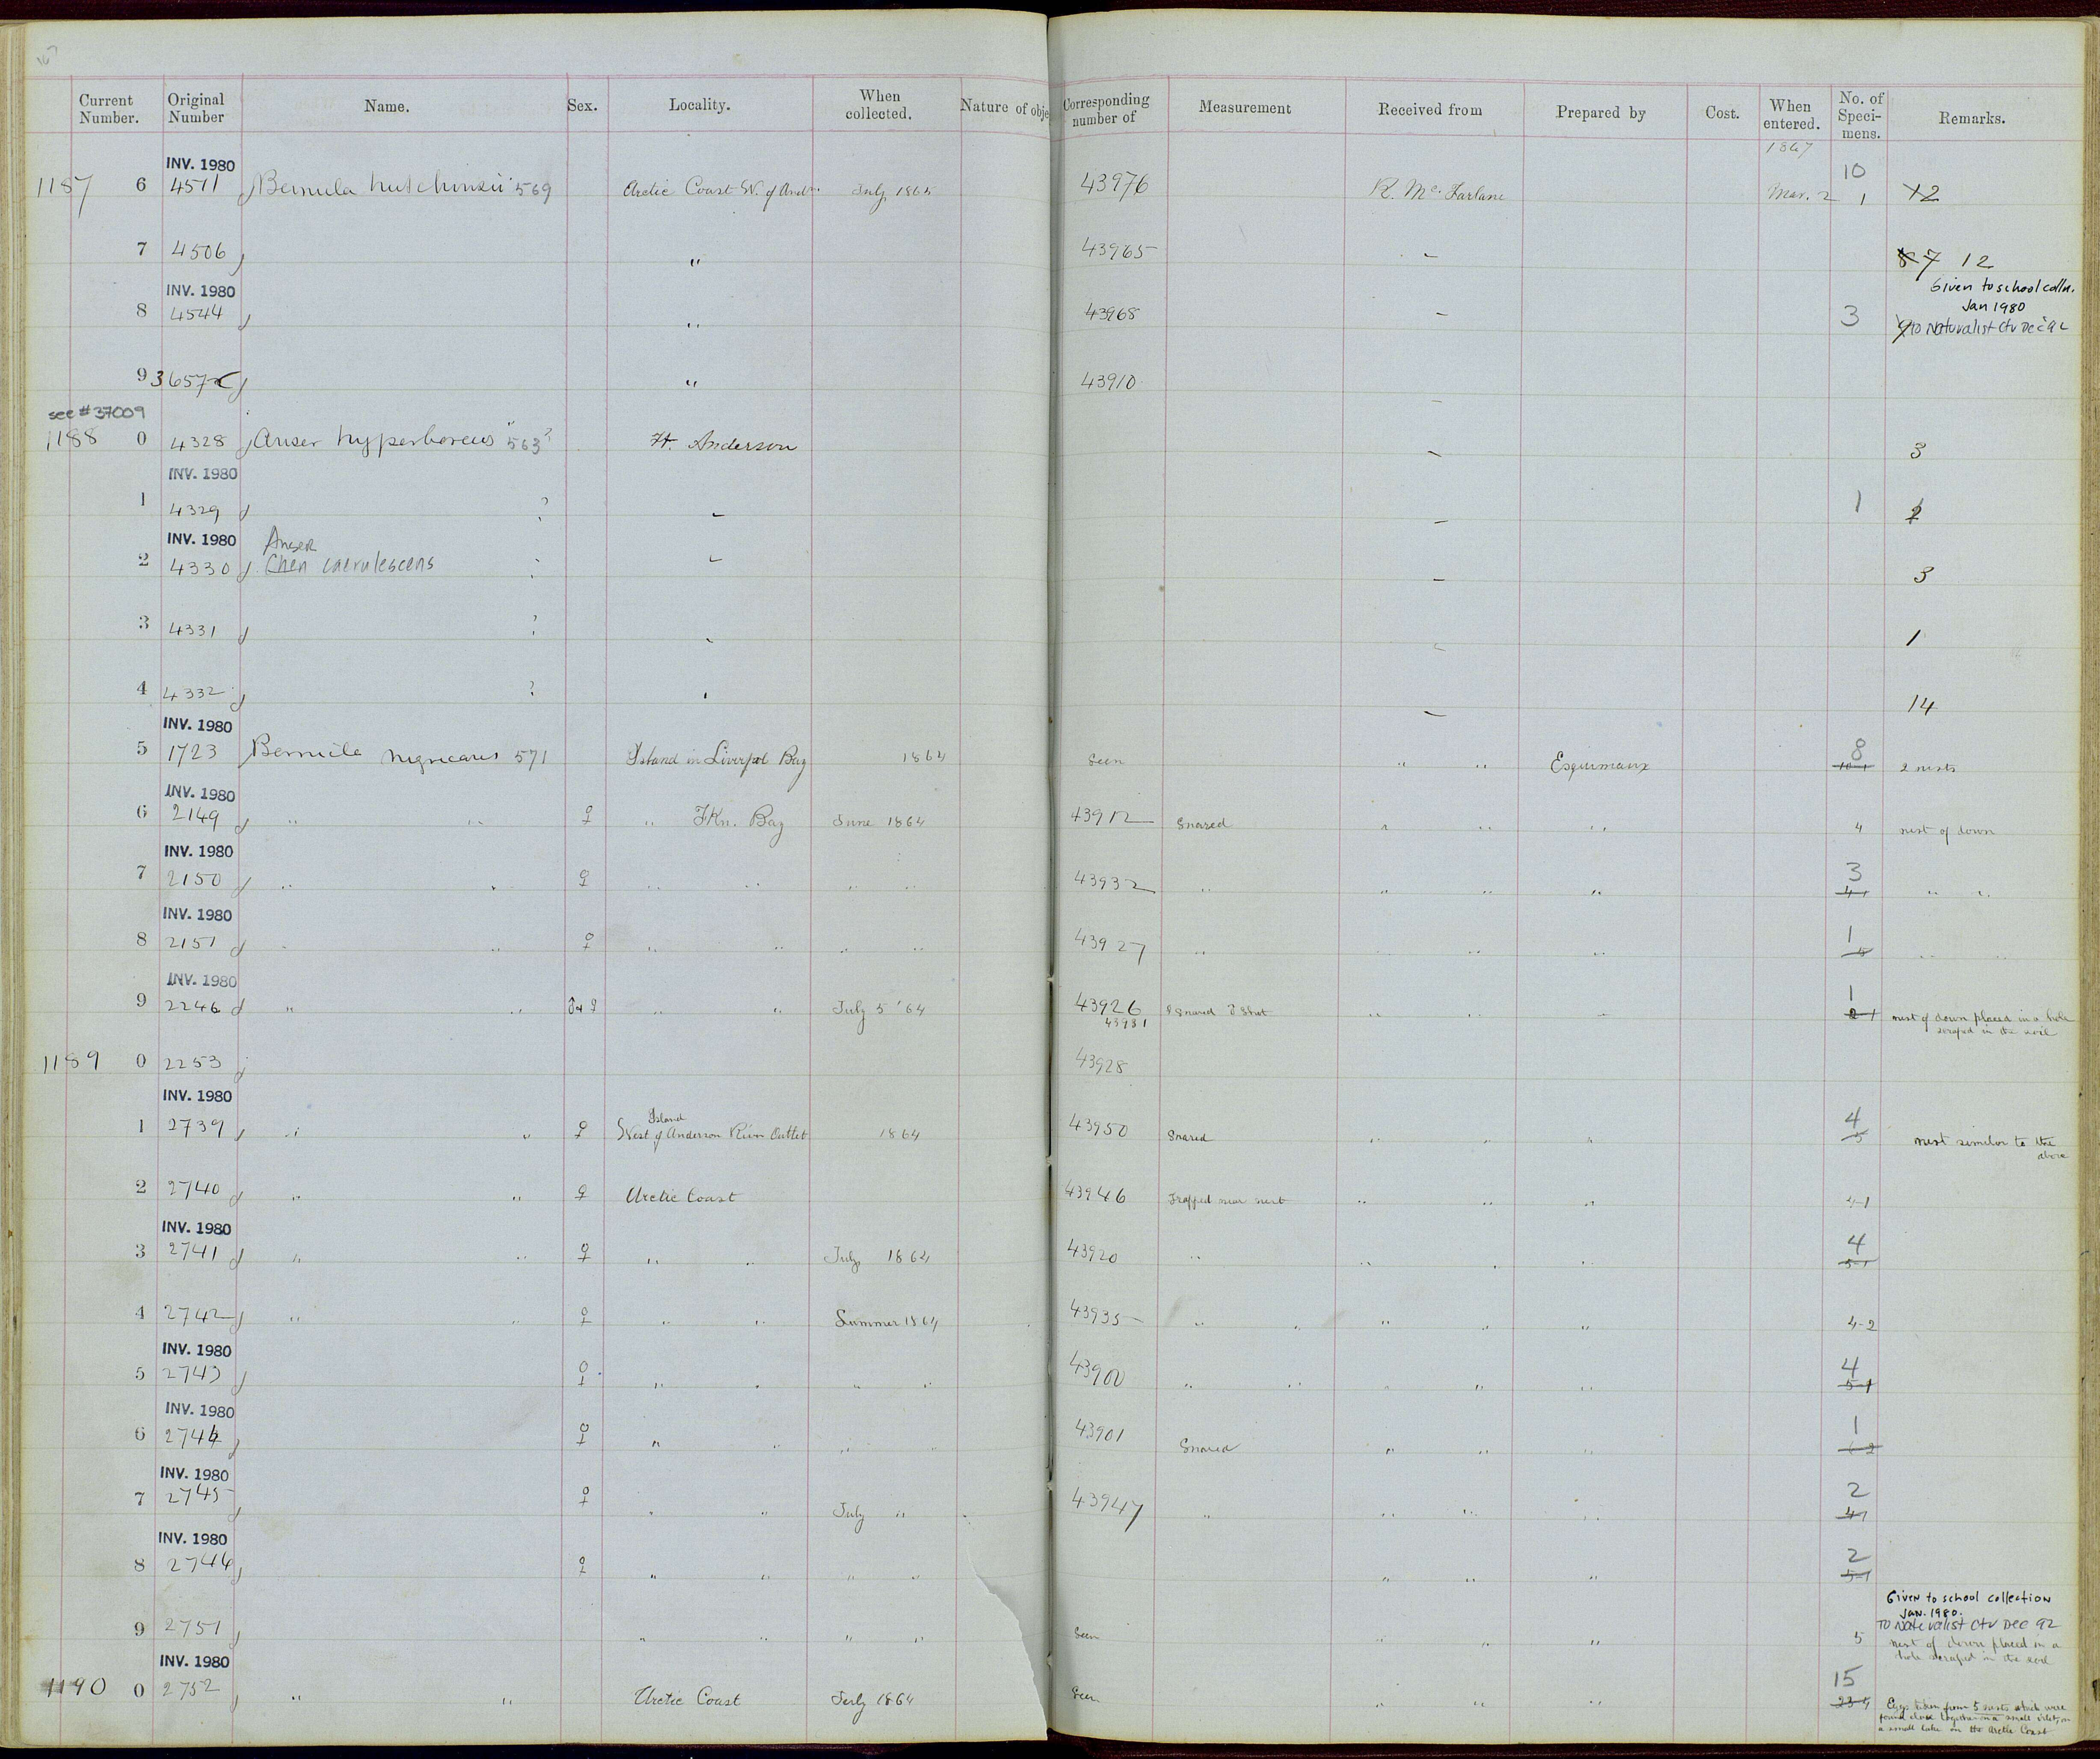 Current Number. Original Number Name. Sex. Locality. When collected. Nature of obje Corresponding number of Measurement Received from Prepared by Cost. When entered. No. of Specimens. Remarks.
1867
INV. 1980 10
1187 6 4511 Bernicla hutchinsii 569 Arctic Coast W. of And July 1865 43976 R. McFarlane Mar. 2 1 12
7 4506 " 43965 – 8 7 12
Given to school colln.
Jan 1980
INV. 1980
8 4544 " 43968 – 3 To Naturalist Ctr Dec 92
9 3657 " 43910 –
see #37009
1188 0 4328 Anser hyperboreus 563? Ft. Anderson – 3
INV. 1980
1 4329 ? – – 1
INV. 1980 Anser
2 4330 Chen caerulescens – – 3
3 4331 ? – 1
4 4332 ? – 14
INV. 1980
5 1723 Bernicla nigricans 571 Island in Liverpol Bay 1864 Seen " " Esquimaux 8 2 nests
INV. 1980
6 2149 " " ♀ " Fkn. Bay June 1864 43912 Snared " " " " 4 nest of down
INV. 1980
7 2150 " " ♀ " " " " 43932 " " " " 3 4 " "
INV. 1980
8 2151 " " ♀ " " " " 43927 " " " 1 5 " "
INV. 1980
9 2246 " " ♂ & ♀ " " July 5 '64 43926 ♀ Snared ♂ Shot " " " 1 2-1 nest of down placed in a hole
43931 scraped in the soil
1189 0 2253 43928
INV. 1980
Island
1 2739 " " ♀ West of Anderson River Outlet 1864 43950 Snared " " " 4 5 nest similar to the
above
2 2740 " " ♀ Arctic Coast 43946 Trapped near nest " " " 4-1
INV. 1980
3 2741 " " ♀ " " July 1864 43920 " " " " 4 5-1
4 2742 " " ♀ " " Summer 1864 43935 " " " " " 4-2
INV. 1980
5 2743 ♀ " " " " 43900 " " " " " 4 5-1
INV. 1980
6 2744 ♀ " " " " 43901 Snared " " " 1
INV. 1980
7 2745 ♀ " " July " 43947 " " " " 2 4-1
INV. 1980
8 2746 ♀ " " " " " " " 2 5-1
Given to school collection
Jan. 1980.
To Naturalist Ctr Dec 92
9 2751 " " " " Seen " " " 5 nest of down placed in a
hole scraped in the soil
INV. 1980
1190 0 2752 " " Arctic Coast July 1864 Seen " " " 15 Eggs taken from 5 nests which were
found close together on a small islet in
a small lake on the Arctic Coast